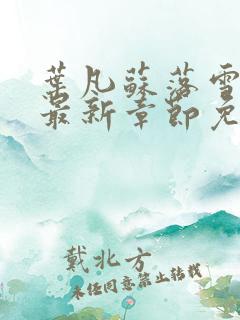 葉凡蘇落雪
最新章節免
戴北方
未经同意禁止转载